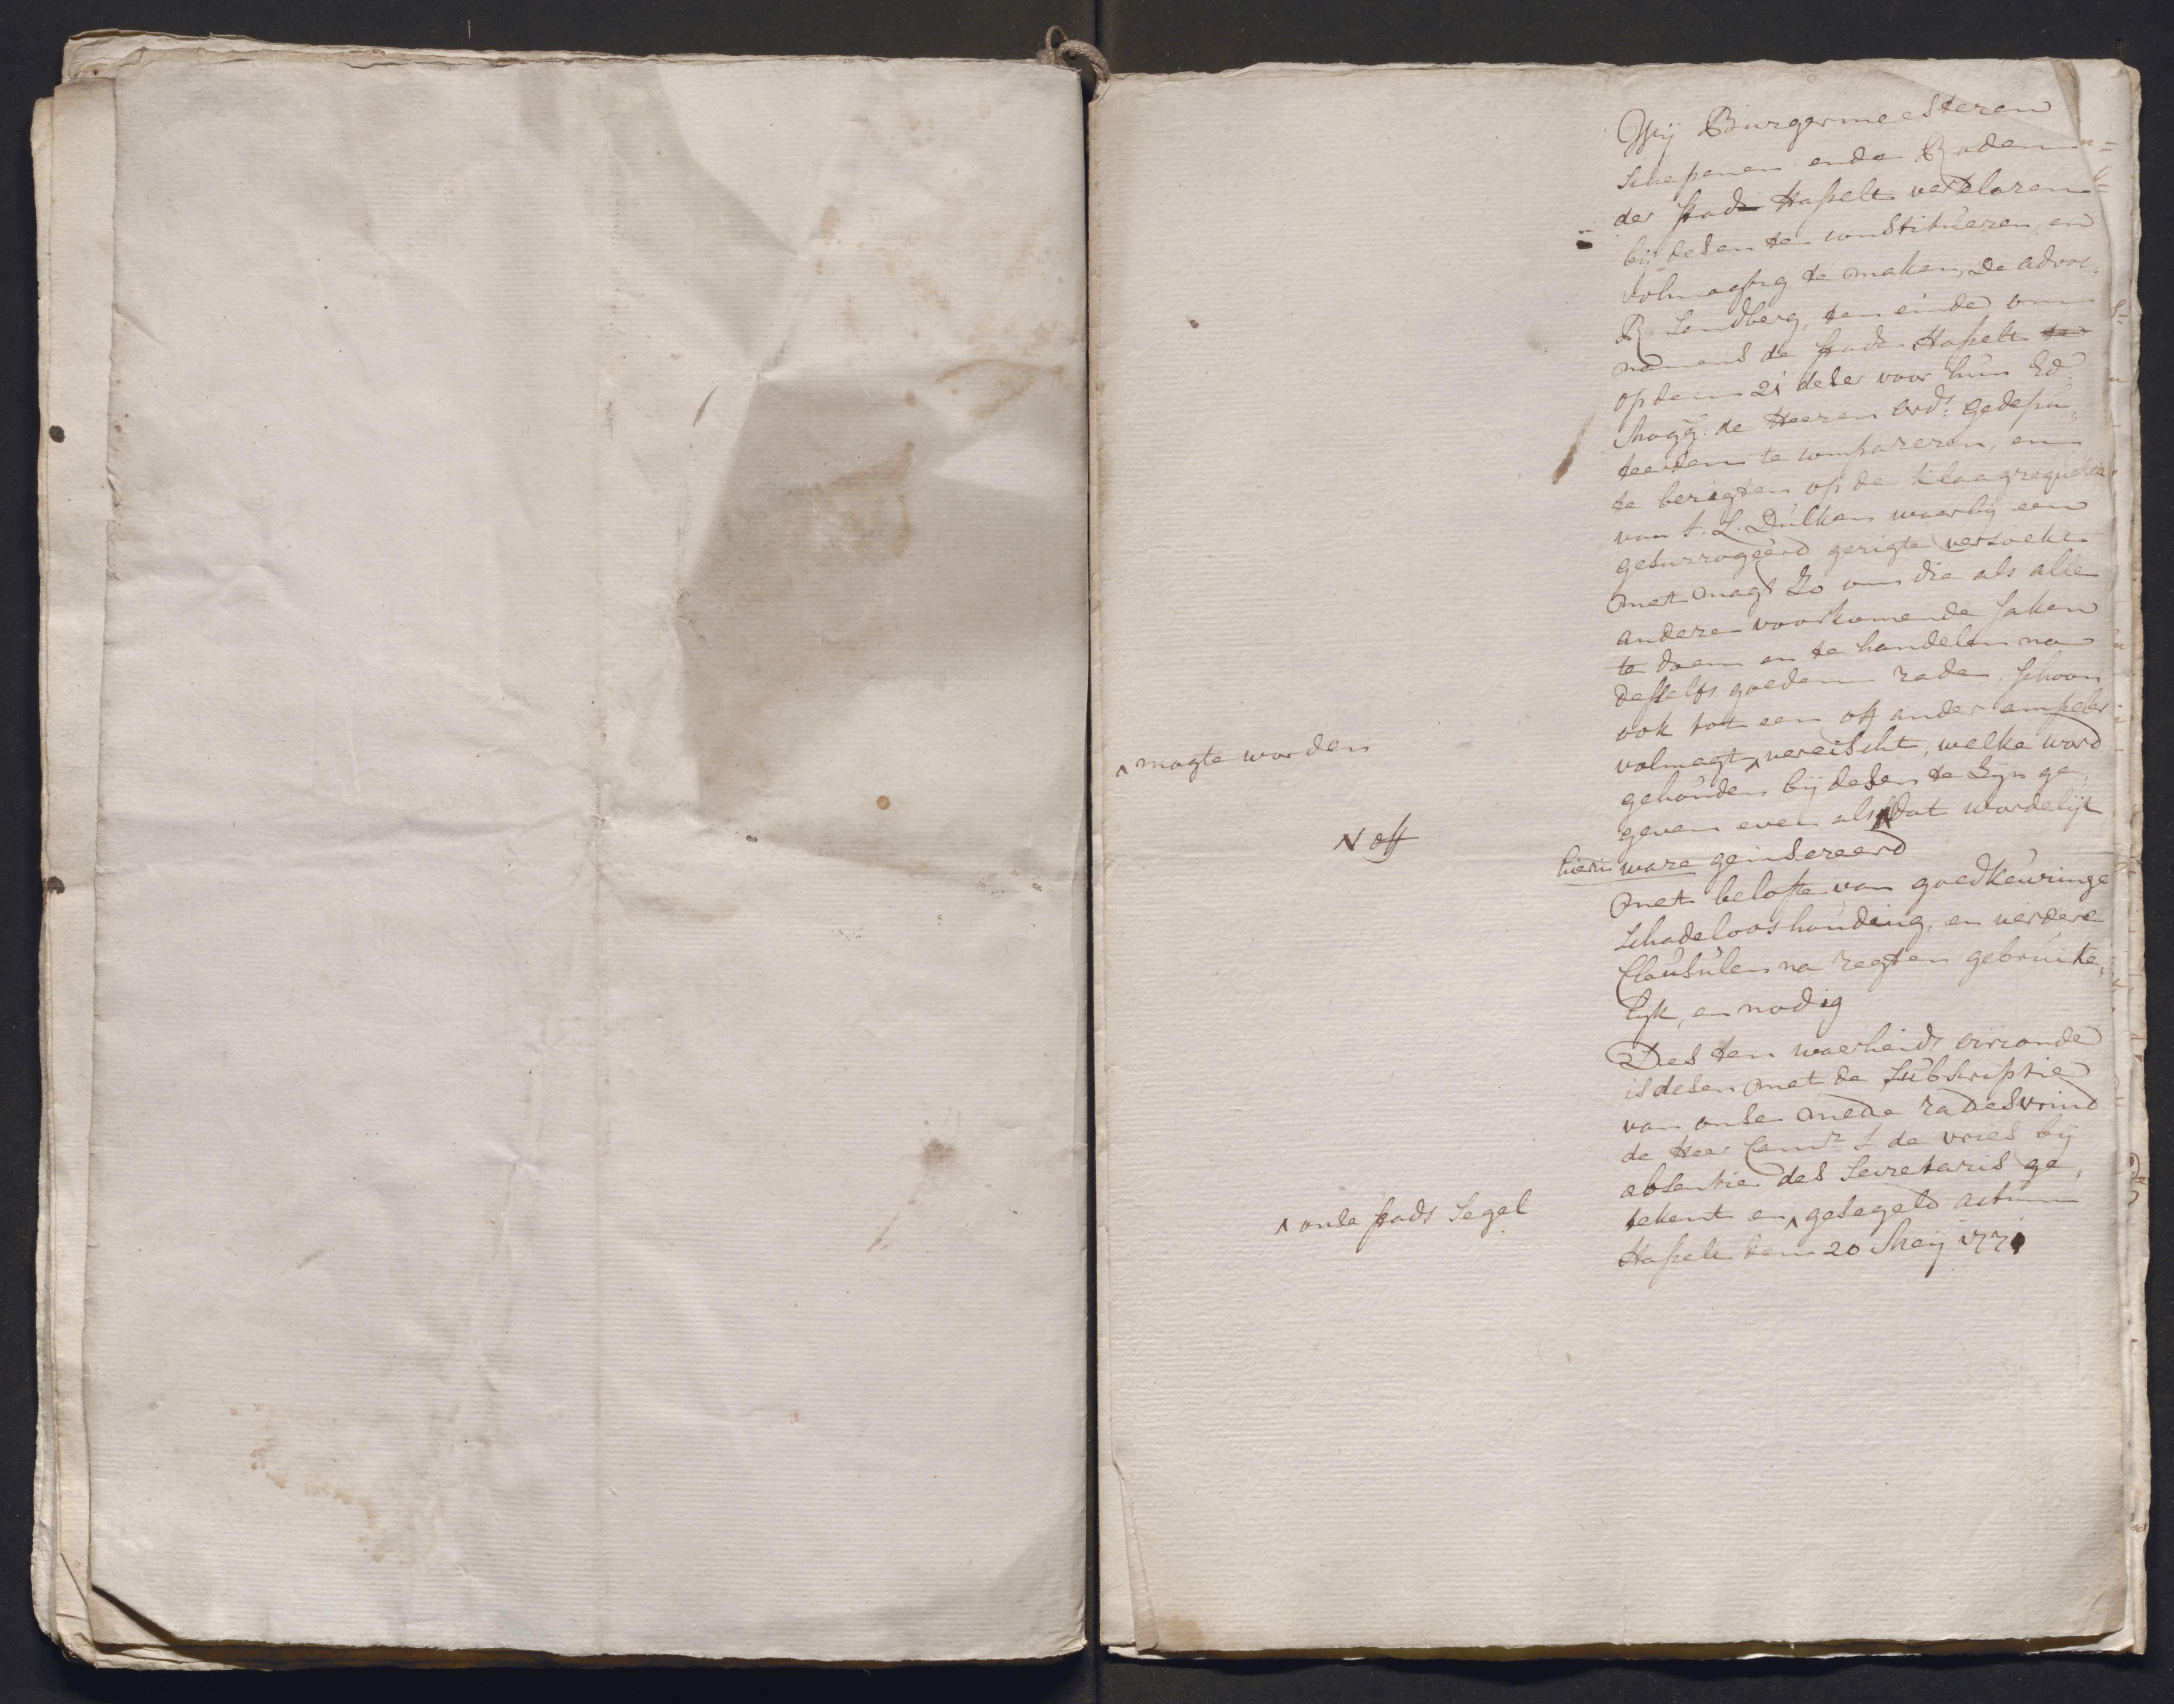 Wij Burgermeesteren
Schepenen ende Raden
der stadt Hasselt verklaren
bij desen te constitueren, en
volmagtig te maken, de advoc.
R Sandberg, ten einde om
namens de stadt Hasselt ter
op den 21 deser voor hun Ed
Mogg. de Heeren ord: Gedepu,
teerden te compareren, en
te berigten op de klaagrequeste
van L. Dulken waarbij een
gesurrogeerd gerigte versoekt
met magt Zo om die als alle
andere voorkomende saken
te doen en te handelen na
desselfs goeden rade, schoon
ook tot een off ander ampeler
volmagt ^ vereischt, welke word
^ magte worden
gehouden bij desen te Zijn ge,
geven even als ^ dat woordelijk
^ off
hierin ware geinsereerd
met belofte van goedkeuringe
schadelooshouding, en verdere
Clausulen na regten gebruike,
lijk, en nodig
Des ten waerheids oirconde
is desen met de Subscriptie
van onse mede radesvrind
de Heer Camr de Vries bij
absentie des Secretaris ge,
tekent en ^ gesegeld actum
^ onse stads Segel
Hasselt den 20 Meij 1771